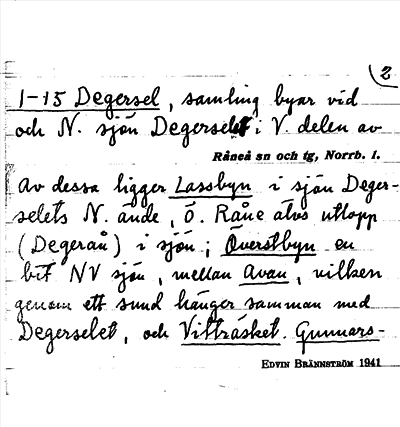 2
1-15 Degersel, samling byar vid
och N. sjön Degerselet i V. delen av
Råneå sn och tg, Norrb. l.
Av dessa ligger Lassbyn i sjön Deger-
selets N. ände, Ö. Råne älvs utlopp
(Degerån) i sjön; Överstbyn en
bit NV sjön, mellan Avan, vilken
genom ett sund hänger samman med
Degerselet, och Vitträsket. Gunnars-
EDVIN BRÄNNSTRÖM 1941